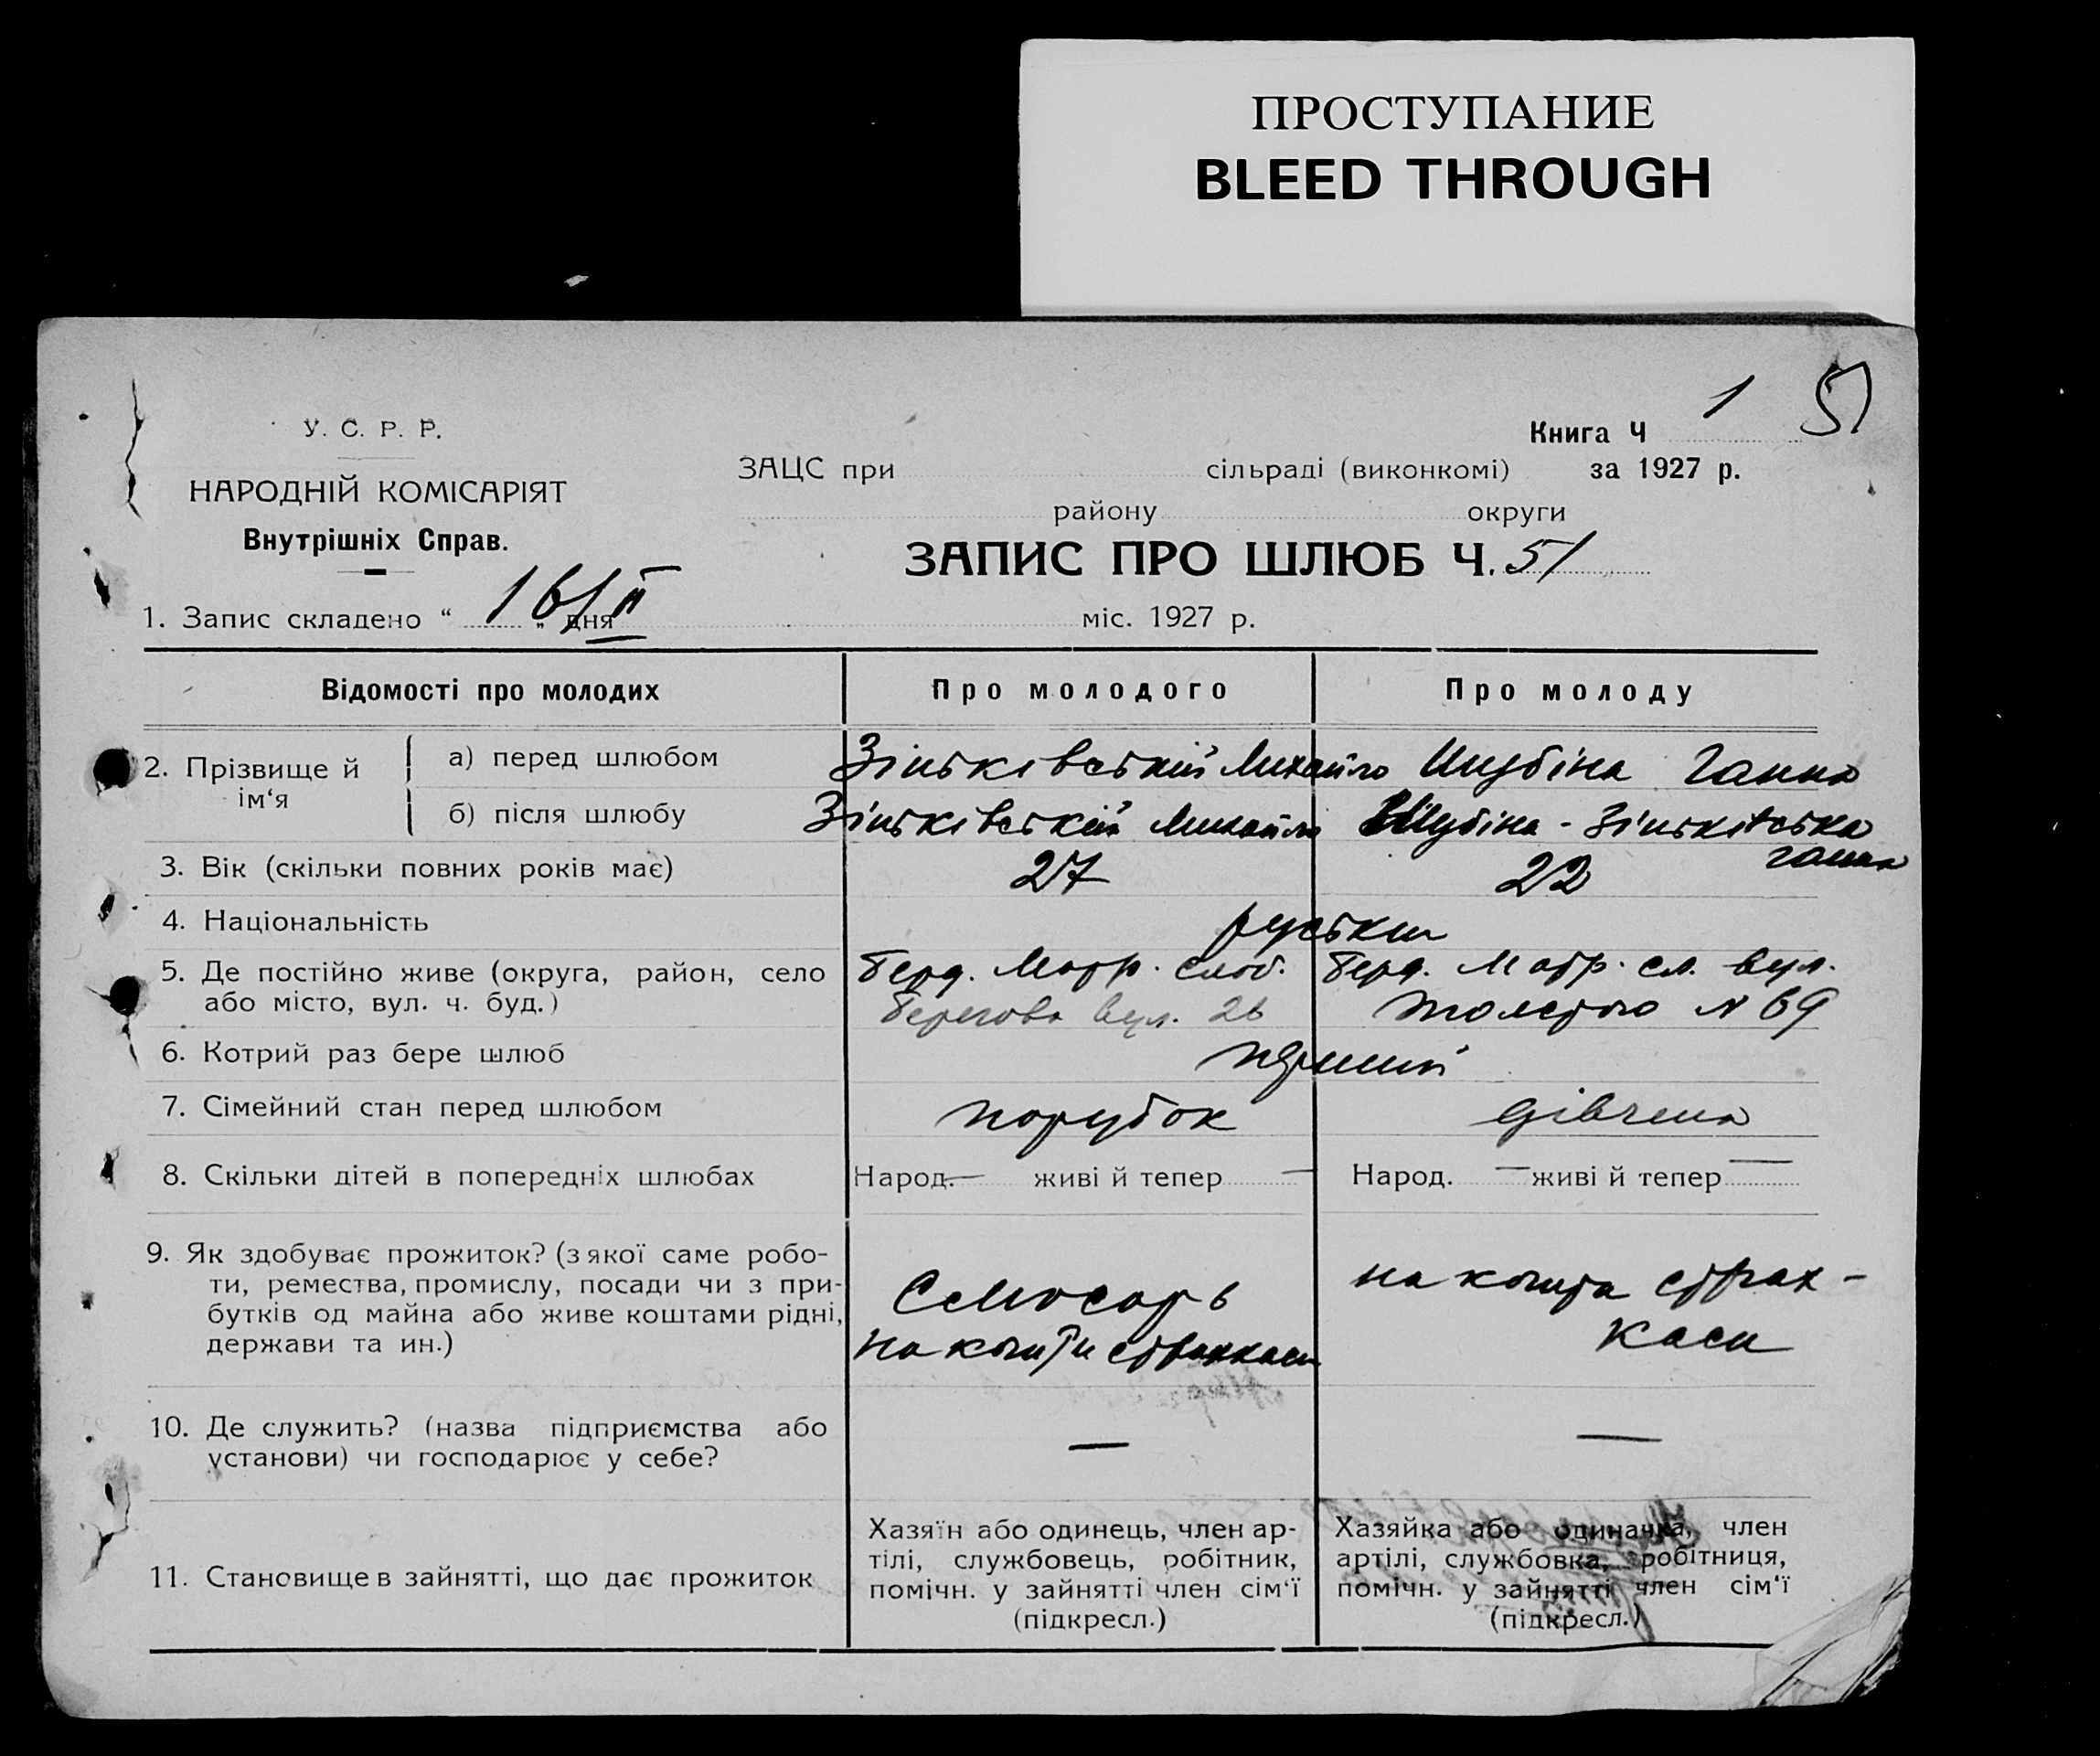 ПРОСТУПАНИЕ
BLEED THROUGH
1 51
У. С. Р. Р.
НАРОДНІЙ КОМІСАРІЯТ
Внутрішніх Справ.
Книга Ч
ЗАЦС при сільраді (виконкомі) за 1927 р.
району округи
ЗАПИС ПРО ШЛЮБ Ч. 51
1. Запис складено “ 16/II „ дня міс. 1927 р.
Відомості про молодих Про молодого Про молоду
2. Прізвище й ім‘я
а) перед шлюбом Зіньківський Михайло Шубіна Ганна
б) після шлюбу Зіньківський Михайло Шубіна - Зіньківська
Ганна
3. Вік (скільки повних років має) 27 22
4. Національність руськи
5. Де постійно живе (округа, район, село Берд. Матр. слоб. Берд. Матр. сл. вул.
або місто, вул. ч. буд.) Берегова вул. 26 Толстого N 69
6. Котрий раз бере шлюб перший
7. Сімейний стан перед шлюбом парубок дівчина
8. Скільки дітей в попередніх шлюбах Народ. — живі й тепер — Народ. — живі й тепер —
9. Як здобуває прожиток? (з якої саме робо-
ти, ремества, промислу, посади чи з при-
бутків од майна або живе коштами рідні,
держави та ин.)
Слюсарь
на кошти страхкаси
на кошти страх-
каси
10. Де служить? (назва підприємства або
установи) чи господарює у себе?
— —
11. Становище в зайнятті, що дає прожиток
Хазяїн або одинець, член ар-
тілі, службовець, робітник,
помічн. у зайнятті член сім‘ї
(підкресл.)
Хазяйка або одиначка, член
артілі, службовка, робітниця,
помічн. у зайнятті член сім‘ї
(підкресл.)